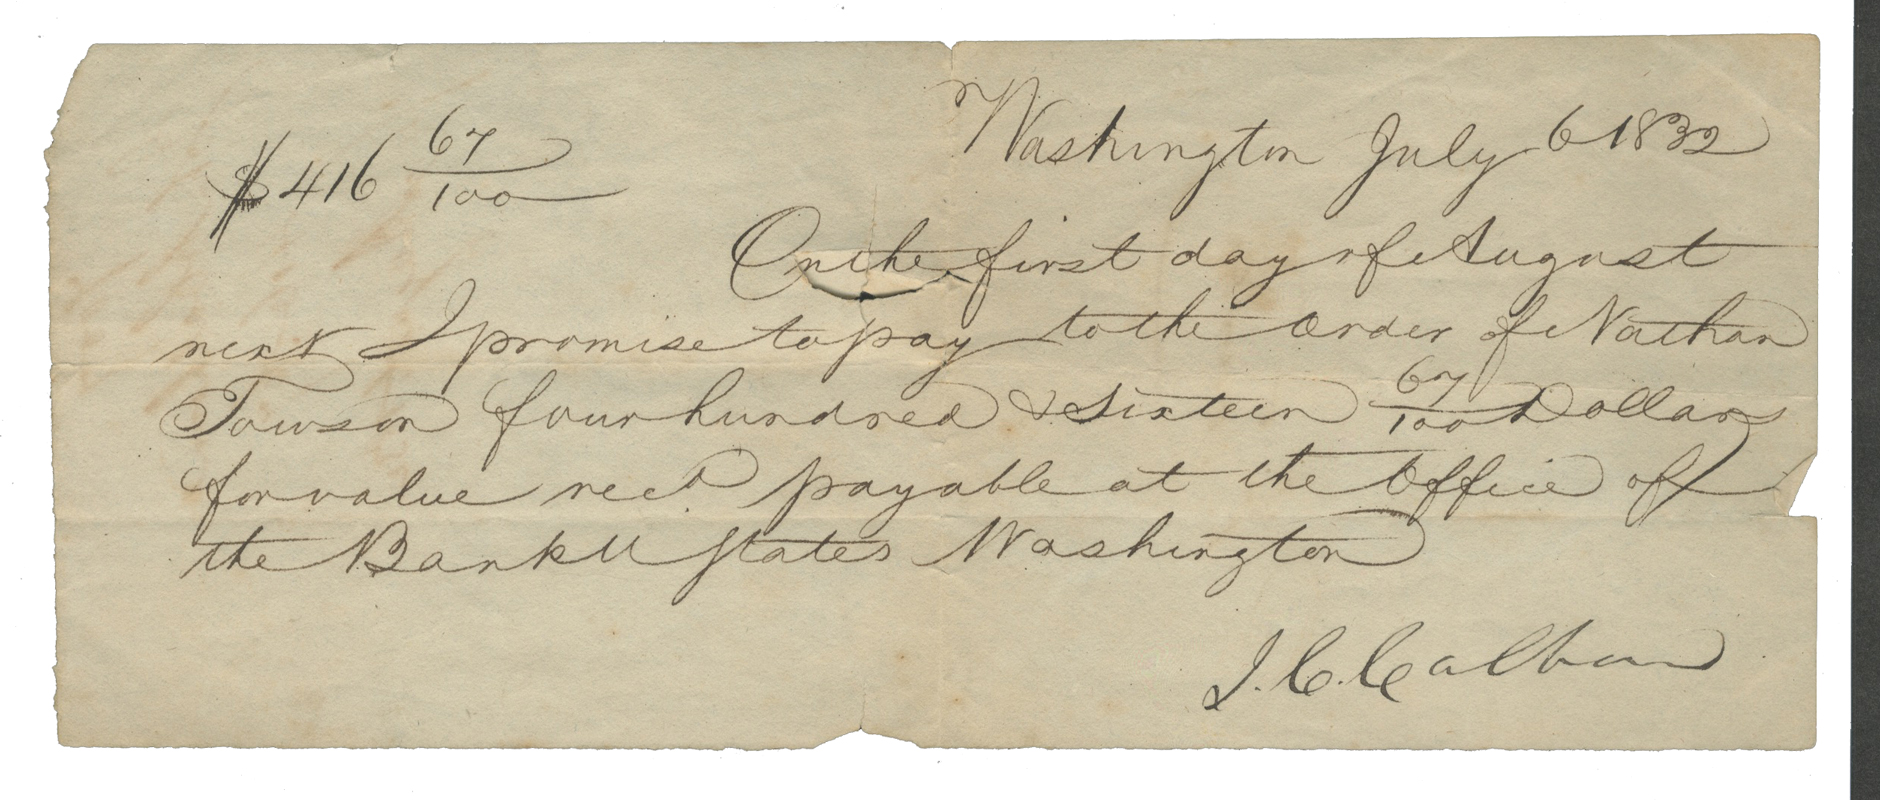 Washington July 6 1832
$416 67/100
On the first day of August
next I promise to pay to the order of Nathan
Towson four hundred & sixteen 67/100 Dollars
for value recd payable at the Office of
the Bank U States Washington
J. C. Calhoun